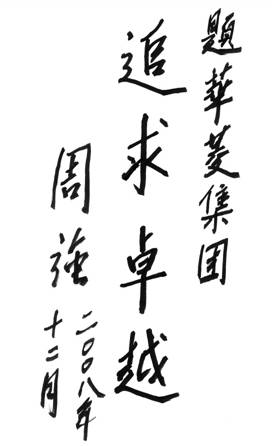 題華菱集团
追求卓越
周强
二〇〇八年
十二月